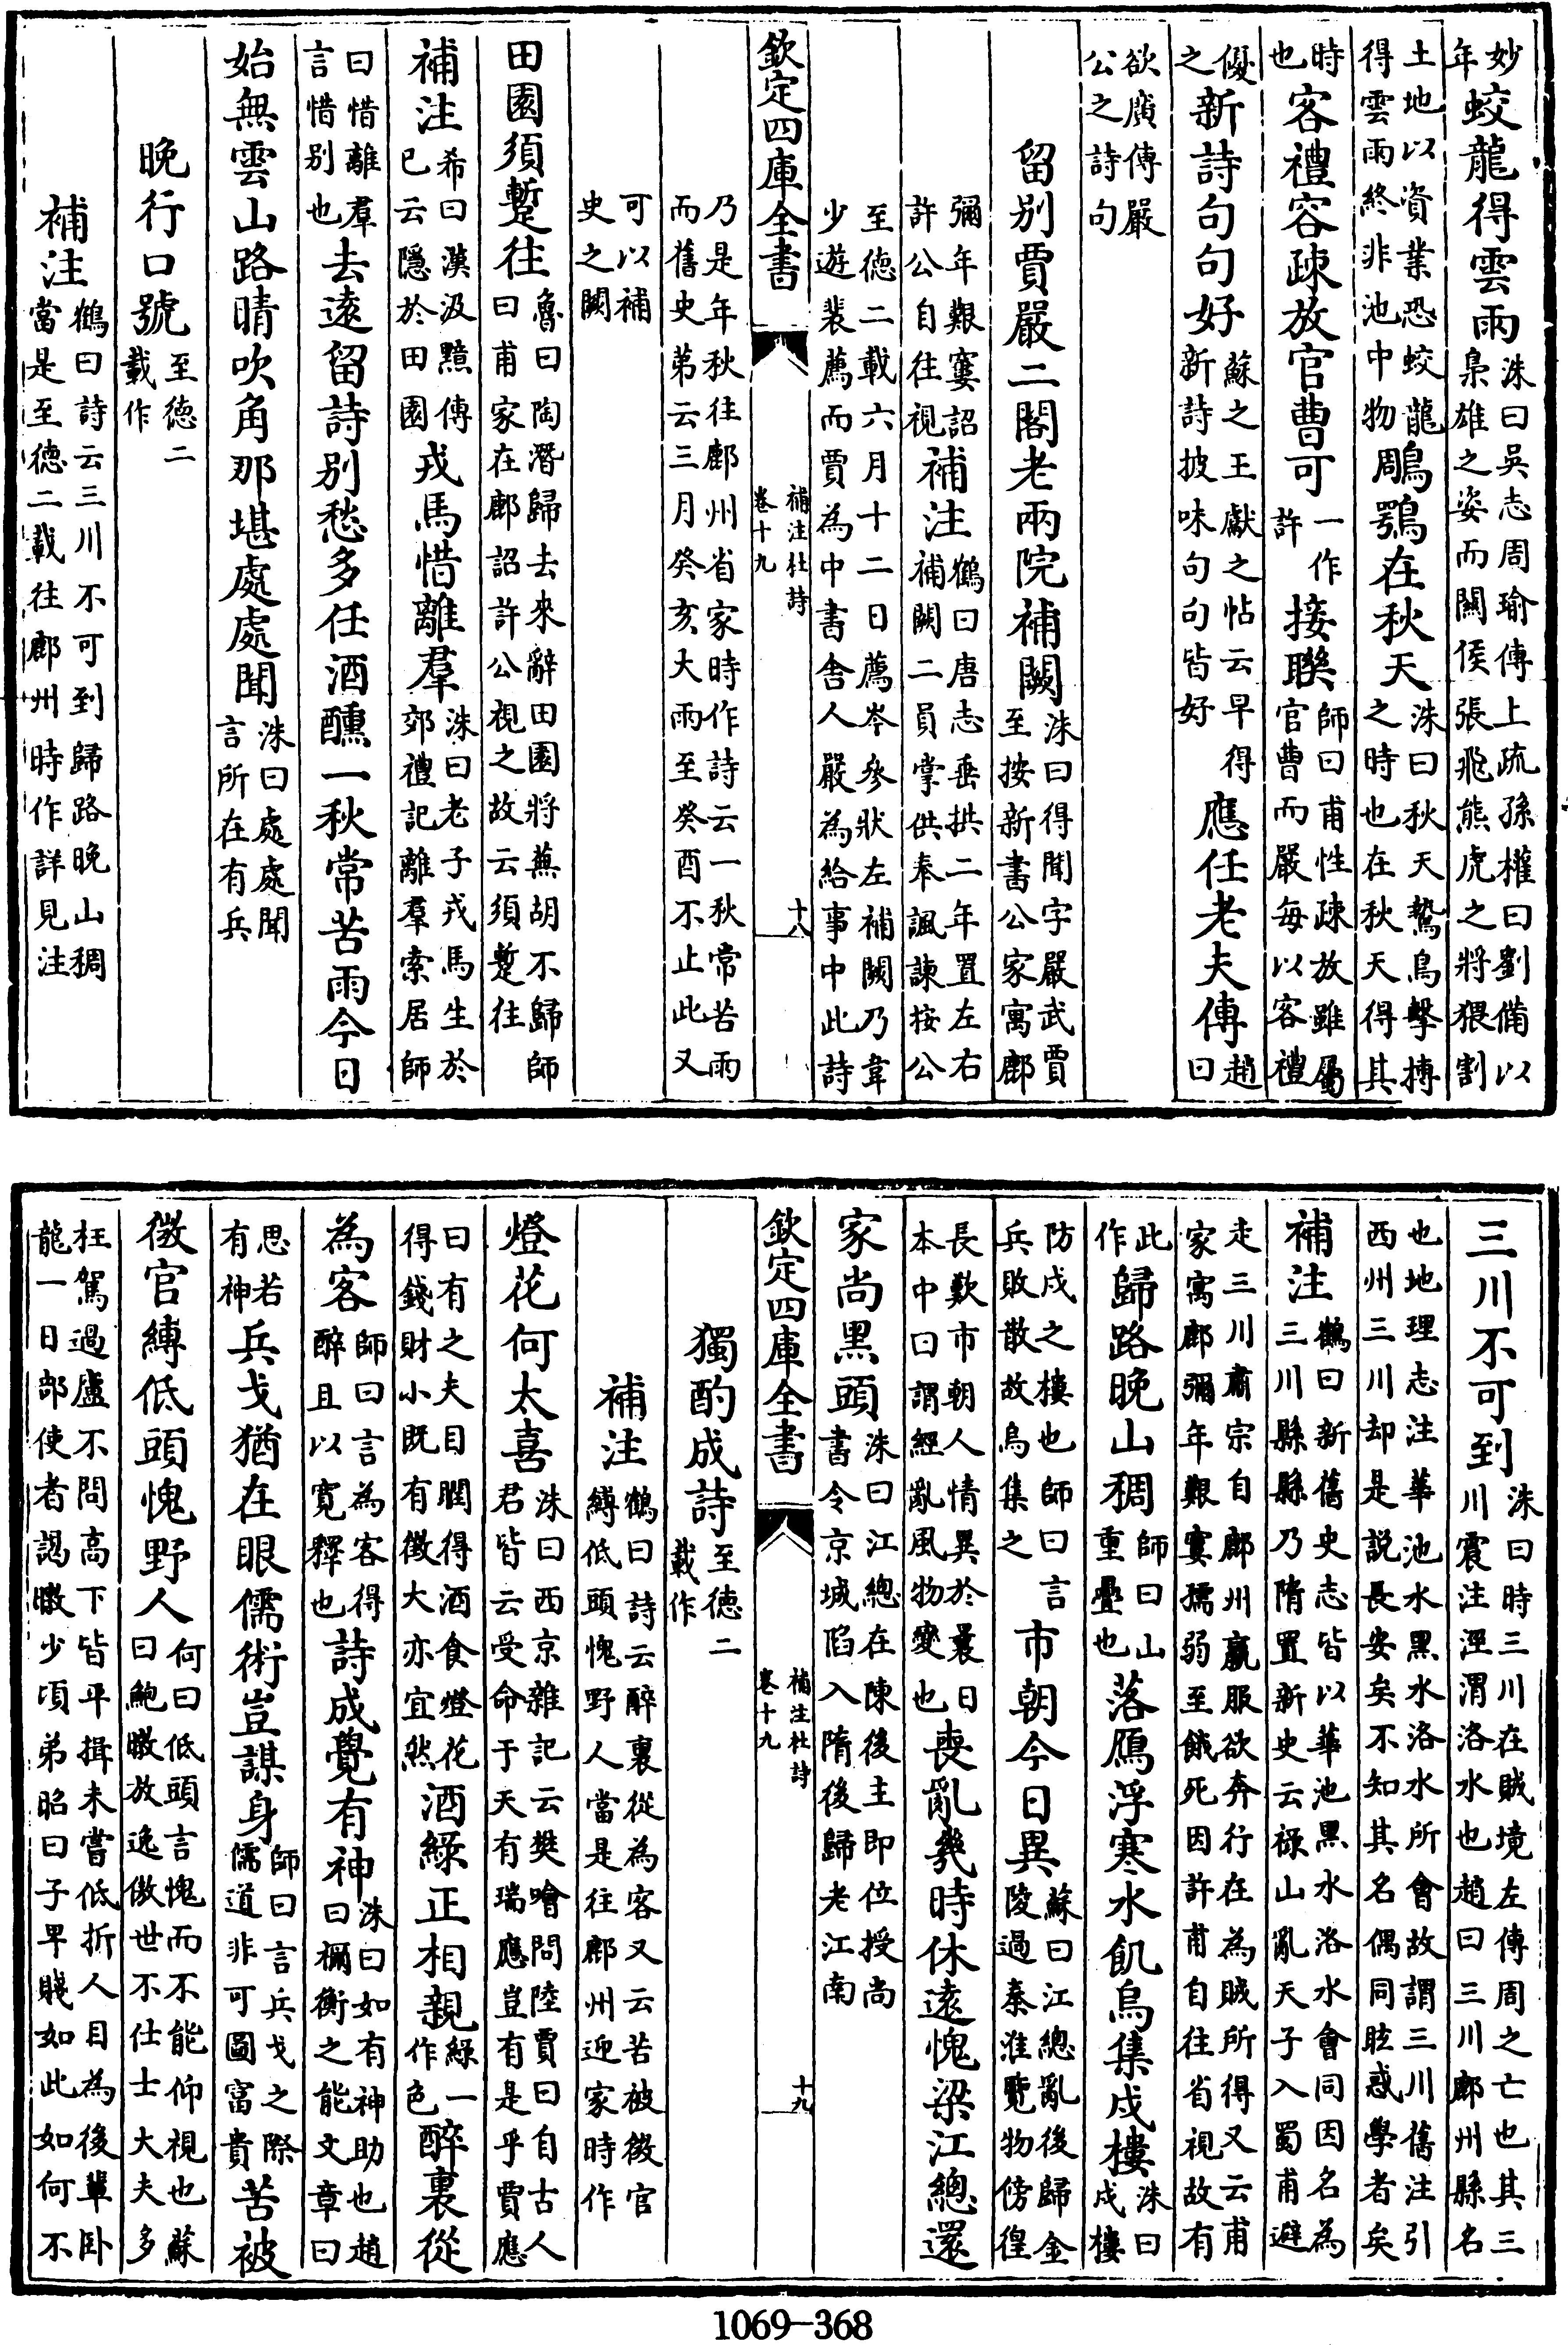 妙年蛟龍得雲雨洙曰吳志周瑜傳上疏孫權曰劉備以梟雄之姿而闗侯張飛熊虎之將猥割
土地以資業恐蛟龍得雲雨終非池中物鵰鶚在秋天洙曰秋天鷙鳥擊搏之時也在秋天得其
時也客禮容疎放官曹可一作許接聨師曰甫性疎放雖屬官曹而嚴每以客禮
優之新詩句句好蘇之王獻之帖云早得新詩披味句句皆好應任老夫傳趙曰
欲廣傳嚴公之詩句
留别賈嚴二閣老兩院補闕洙曰得聞字嚴武賈至按新書公家寓鄜
彌年艱窶詔許公自往視補注鶴曰唐志垂拱二年置左右補闕二員掌供奉諷諫按公
至徳二載六月十二日薦岑參狀左補闕乃韋少遊裴薦而賈為中書舍人嚴為給事中此詩
欽定四庫全書
補注杜詩
卷十九
十八
乃是年秋往鄜州省家時作詩云一秋常苦雨而舊史弟云三月癸亥大雨至癸酉不止此又
可以補史之闕
田園須蹔往魯曰陶潛歸去來辭田園將蕪胡不歸師曰甫家在鄜詔許公視之故云須蹔往
補注希曰漢汲黯傳已云隱於田園戎馬惜離羣洙曰老子戎馬生於郊禮記離羣索居師
曰惜離羣言惜别也去遠留詩别愁多任酒醺一秋常苦雨今日
始無雲山路晴吹角那堪處處聞洙曰處處聞言所在有兵
晚行口號至徳二載作
補注鶴曰詩云三川不可到歸路晚山稠當是至徳二載往鄜州時作詳見注
三川不可到洙曰時三川在賊境左傳周之亡也其三川震注涇渭洛水也趙曰三川鄜州縣名
也地理志注華池水黑水洛水所會故謂三川舊注引西州三川却是説長安矣不知其名偶同眩惑學者矣
補注鶴曰新舊史志皆以華池黑水洛水會同因名為三川縣縣乃隋置新史云禄山亂天子入蜀甫避
走三川肅宗自鄜州羸服欲奔行在為賊所得又云甫家寓鄜彌年艱窶孺弱至餓死因許甫自往省視故有
此作歸路晚山稠師曰山重疊也落鴈浮寒水飢烏集戍樓洙曰戍樓
防戍之樓也師曰言兵敗散故烏集之市朝今日異蘇曰江總亂後歸金陵過秦淮覽物傍徨
長歎市朝人情異於曩日本中曰謂經亂風物變也喪亂幾時休遠愧梁江總還
家尚黑頭洙曰江總在陳後主即位授尚書令京城陷入隋後歸老江南
欽定四庫全書
補注杜詩
卷十九
十九
獨酌成詩至徳二載作
補注鶴曰詩云醉裏從為客又云苦被微官縛低頭愧野人當是往鄜州迎家時作
燈花何太喜洙曰西京雜記云樊噲問陸賈曰自古人君皆云受命于天有瑞應豈有是乎賈應
曰有之夫目瞤得酒食燈花得錢財小既有徴大亦宜然酒緑正相親緑一作色醉裏從
為客師曰言為客得醉且以寛釋也詩成覺有神洙曰如有神助也趙曰禰衡之能文章曰
思若有神兵戈猶在眼儒術豈謀身師曰言兵戈之際儒道非可圖富貴苦被
微官縛低頭愧野人何曰低頭言愧而不能仰視也蘇曰鮑暾放逸傲世不仕士大夫多
枉駕過盧不問高下皆平揖未嘗低折人目為後輩卧龍一日部使者謁暾少頃弟昭曰子早賤如此如何不
1069-368